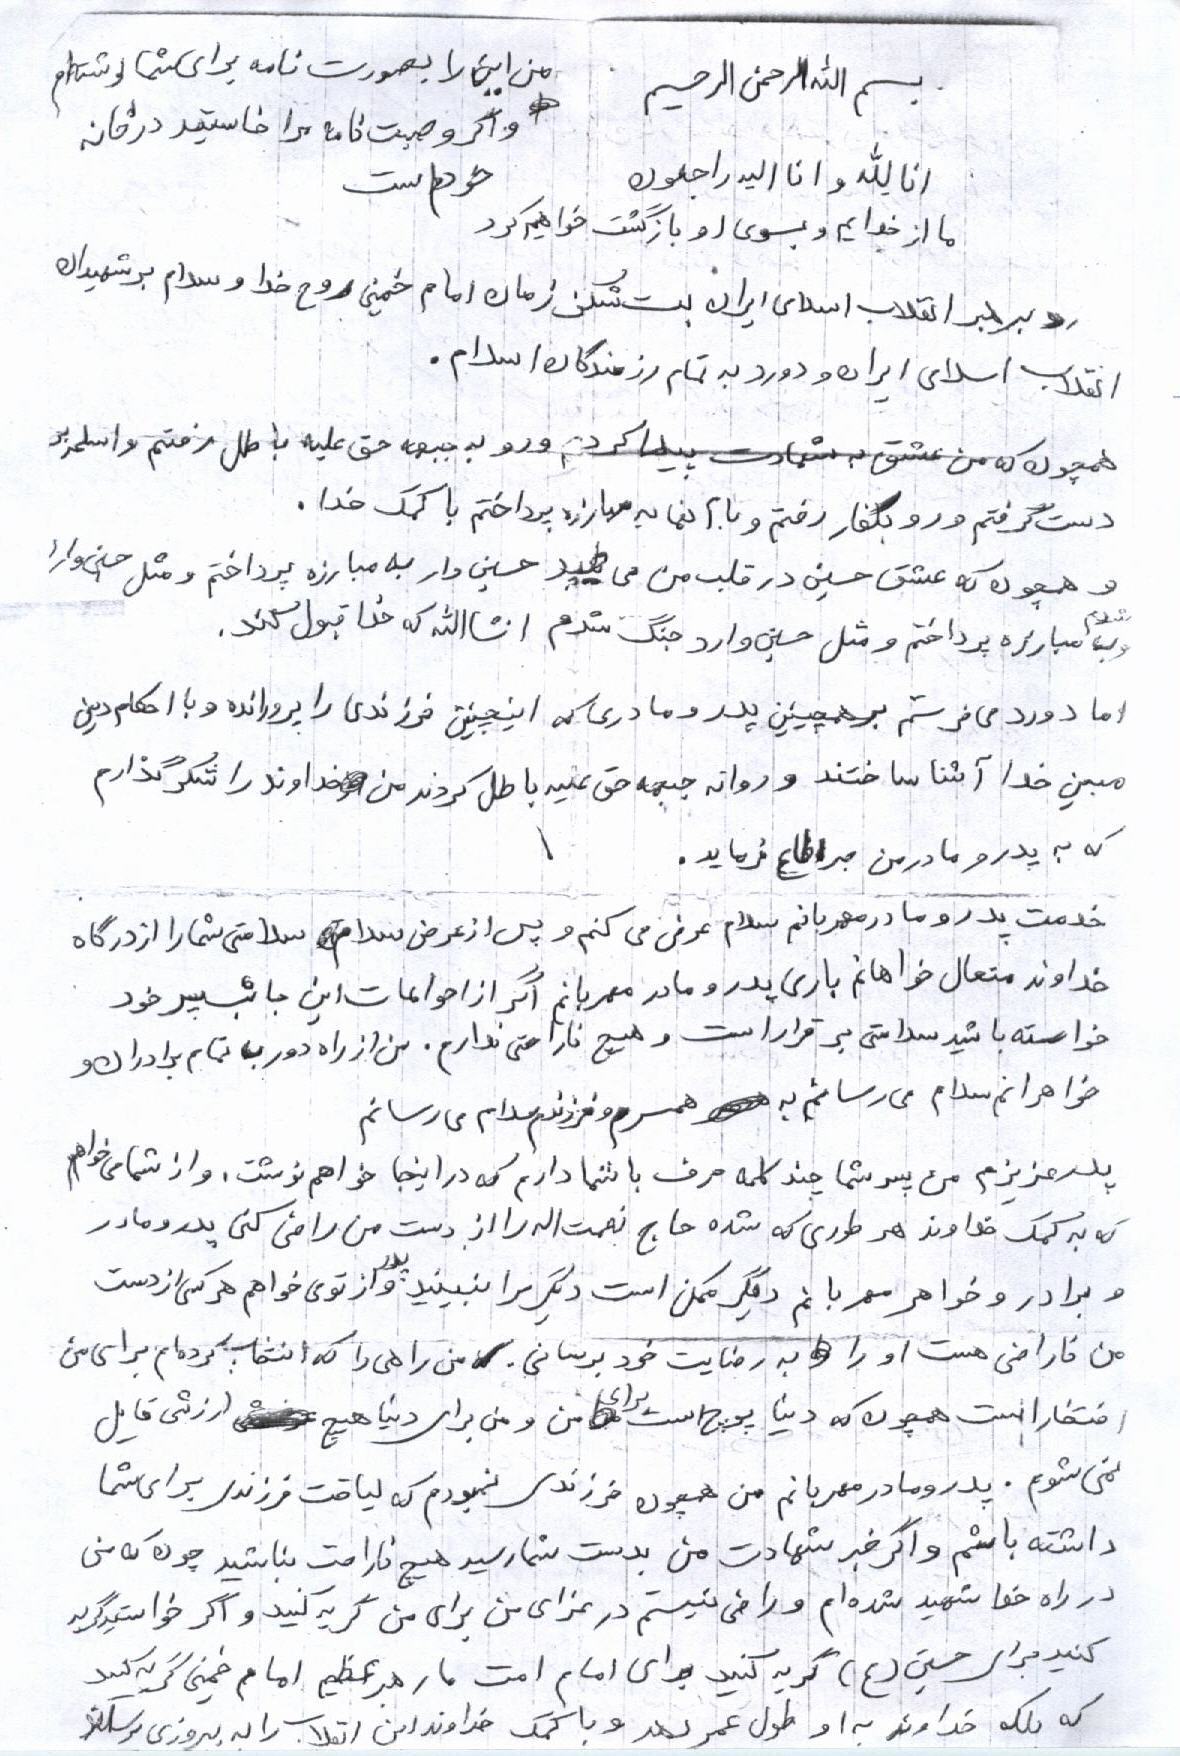 بسم الله الرحمن الرحیم
من این را بصورت نامه برای شما نوشته‌ام
و اگر وصیت نامه مرا خاستید در خانه
خودم است
انا لِلّه و انا الیه راجعون
ما از خدایم و بسوی او بازگشت خواهیم کرد
بر رهبر انقلاب اسلامی ایران بت شکن زمان امام خمینی روح خدا و سلام بر شهیدان
انقلاب اسلامی ایران و دورد به تمام رزمندگان اسلام .
همچون که من عشق به شهادت پیدا کردم و رو به جبهه حق علیه باطل رفتم و اسلحه بر
دست گرفتم و رو بکفار رفتم و با آنها به مبارزه پرداختم با کمک خدا .
و همچون که عشق حسین در قلب من می طپید حسین وار به مبارزه پرداختم و مثل حسین وارد
شدم
و به مبارزه پرداختم و مثل حسین وارد جنگ شدم انشاالله که خدا قبول کند .
اما دورد می فرستم بر همچینین پدر و مادری که اینچنین فرزندی را پرورانده و با احکام دین
مبین خدا آشنا ساختند و روانه جبهه حق علیه باطل کردند من خداوند را شکر گذارم
که به پدر و مادر من فرماید .
خدمت پدر و مادر مهربانم سلام عرض می کنم و پس از عرض سلام سلامتی شما را از درگاه
خداوند متعال خواهانم باری پدر و مادر مهربانم اگر از احوالات این جانب پسر خود
خواسته باشید سلامتی بر قرار است و هیچ ناراحتی ندارم . من از راه دور به تمام برادران و
خواهرانم سلام می رسانم به همسرم و فرزندم سلام می رسانم
پدر عزیزم من پسر شما چند کلمه حرف با شما دارم که در اینجا خواهم نوشت . و از شما می خواهم
که به کمک خداوند هر طوری که شده حاج نعمت اله را از دست من راضی کنی پدر و مادر
و برادر و خواهر مهربانم دیگر ممکن است دیگر مرا نبینید پدر و از تو می خواهم هر کس از دست
من ناراضی هست او را به رضایت خود برسانی . من راهی را که انتخاب کرده‌ام برای من
افتخار است همچون که دنیا پوچ است برای من و من برای دنیا هیچ ارزشی قایل
نمی شوم . پدر و مادر مهربانم من همچون فرزندی نبودم که لیاقت فرزندی برای شما
داشته باشم و اگر خبر شهادت من بدست شما رسید هیچ ناراحت نباشید چون که من
در راه خدا شهید شده‌ام و راضی نیستم در عزای من برای من گریه کنید و اگر خواستید گریه
کنید برای حسین (ع) گریه کنید برای امام امت ما رهبر عظیم امام خمینی گریه کنید
که بلکه خداوند به او طول عمر بدهد و با کمک خداوند این انقلاب را به پیروزی برساند